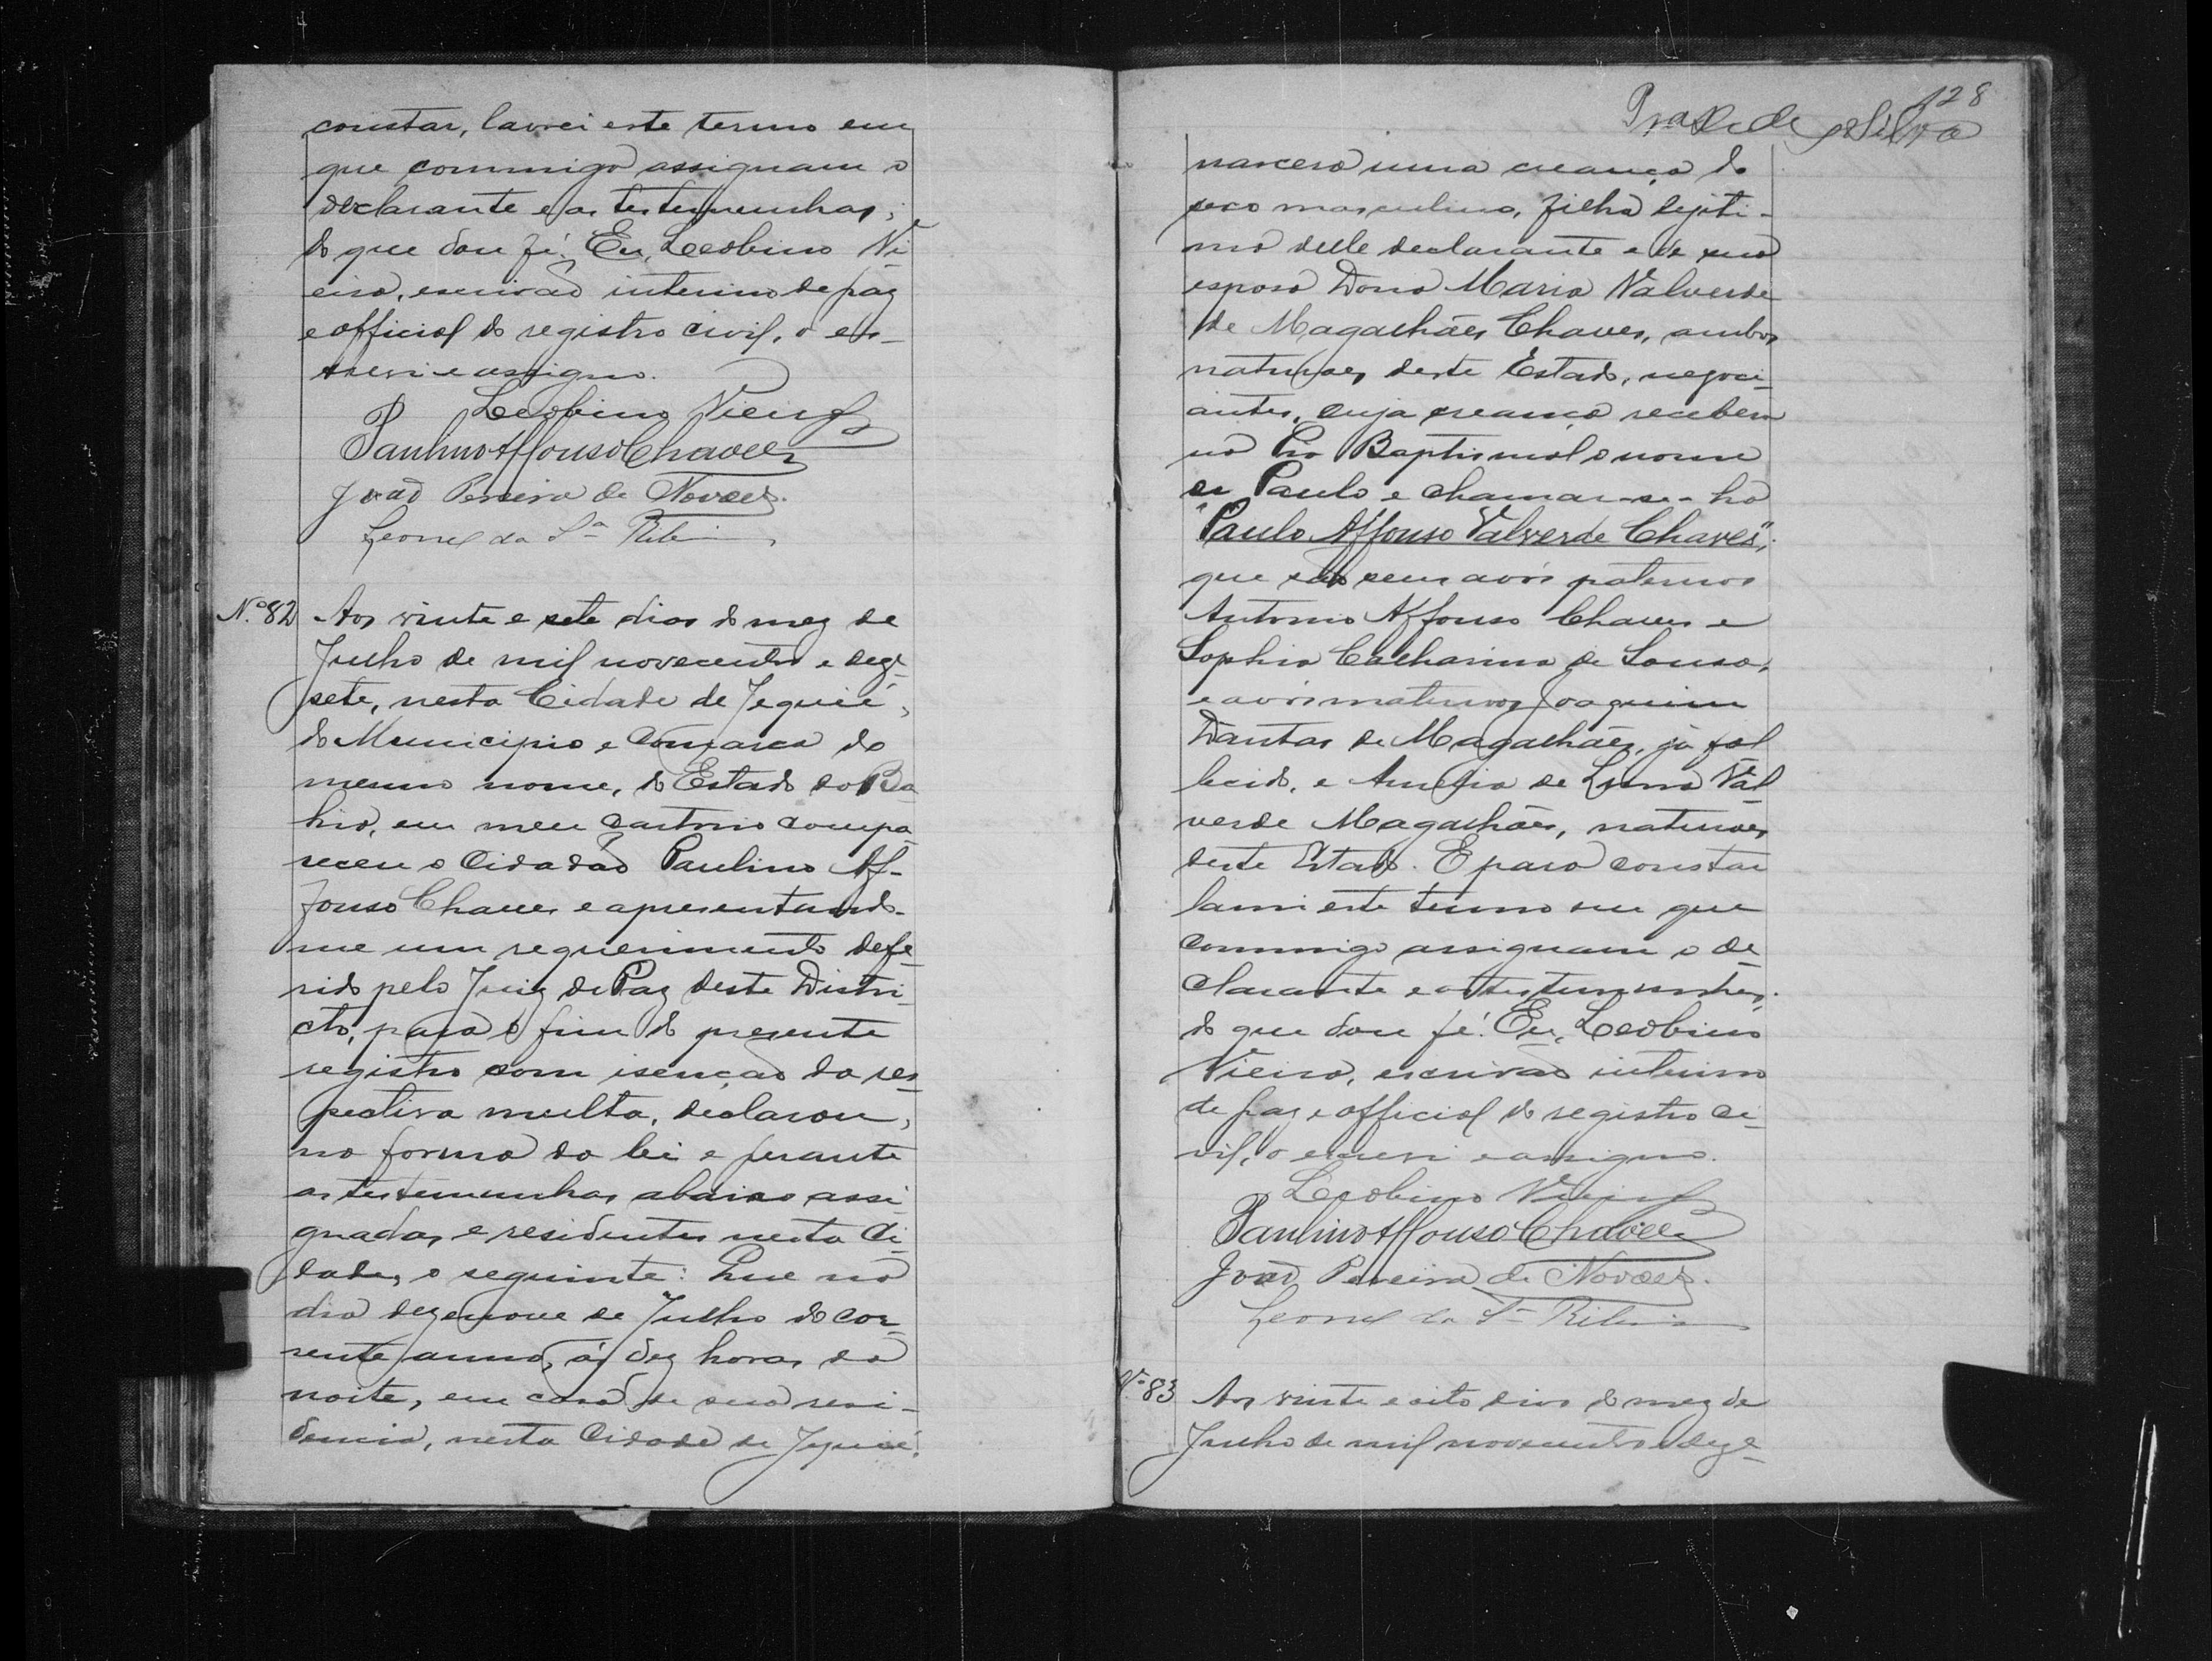 constar, lavrei este termo em
que commigo assignam o
declarante e as testemunhas;
do que dou fé. Eu, Leobino Vi-
eira, escrivão interino de paz
e official do registro civil, o es-
crevi e assigno.
Leobino Vieira
Paulino Affonso Chaves
João Pereira de Novaes.
Leonel da Sª Ribeiro
Nº 82 Aos vinte e sete dias do mez de
Julho de mil novecentos e deze-
sete, nesta Cidade de Jequié,
do Municipio e Comarca do
mesmo nome, do Estado da Ba-
hia, em meu cartorio compa-
receu o Cidadão Paulino Af-
fonso Chaves e apresentando-
me um requerimento defe-
rido pelo Juiz de Paz deste Distri-
cto, para o fim do presente
registro com isenção da res-
pectiva multa, declarou,
na forma da lei e perante
as testemunhas abaixo assi-
gnadas e residentes nesta Ci-
dade, o seguinte: Que no
dia dezenove de Julho do cor-
rente anno, ás dez horas da
noite, em casa de sua resi-
dencia, nesta Cidade de Jequié,
128
Silva
nascera uma creança do
sexo masculino, filha legiti-
ma delle declarante e de sua
esposa Dona Maria Valverde
de Magalhães Chaves, ambos
naturaes deste Estado, negoci-
antes, cuja creança receberá
na Pia Baptismal o nome
de Paulo e chamar-se-ha
"Paulo Affonso Valverde Chaves";
que são seus avós paternos
Antonio Affonso Chaves e
Sophia Catharina de Sousa,
e avós maternos Joaquim
Dantas de Magalhães, já fal
lecido, e Amelia de Lima Val
verde Magalhães, naturaes
deste Estado. E para constar
lavrei este termo em que
commigo assignam o de-
clarante e as testemunhas;
do que dou fé. Eu, Leobino
Vieira, escrivão interino
de paz e official do registro ci-
vil, o escrevi e assigno.
Leobino Vieira
Paulino Affonso Chaves
João Pereira de Novaes.
Leonel da Sª Ribeiro
Nº 83 Aos vinte e oito dias do mez de
Julho de mil novecentos e deze-